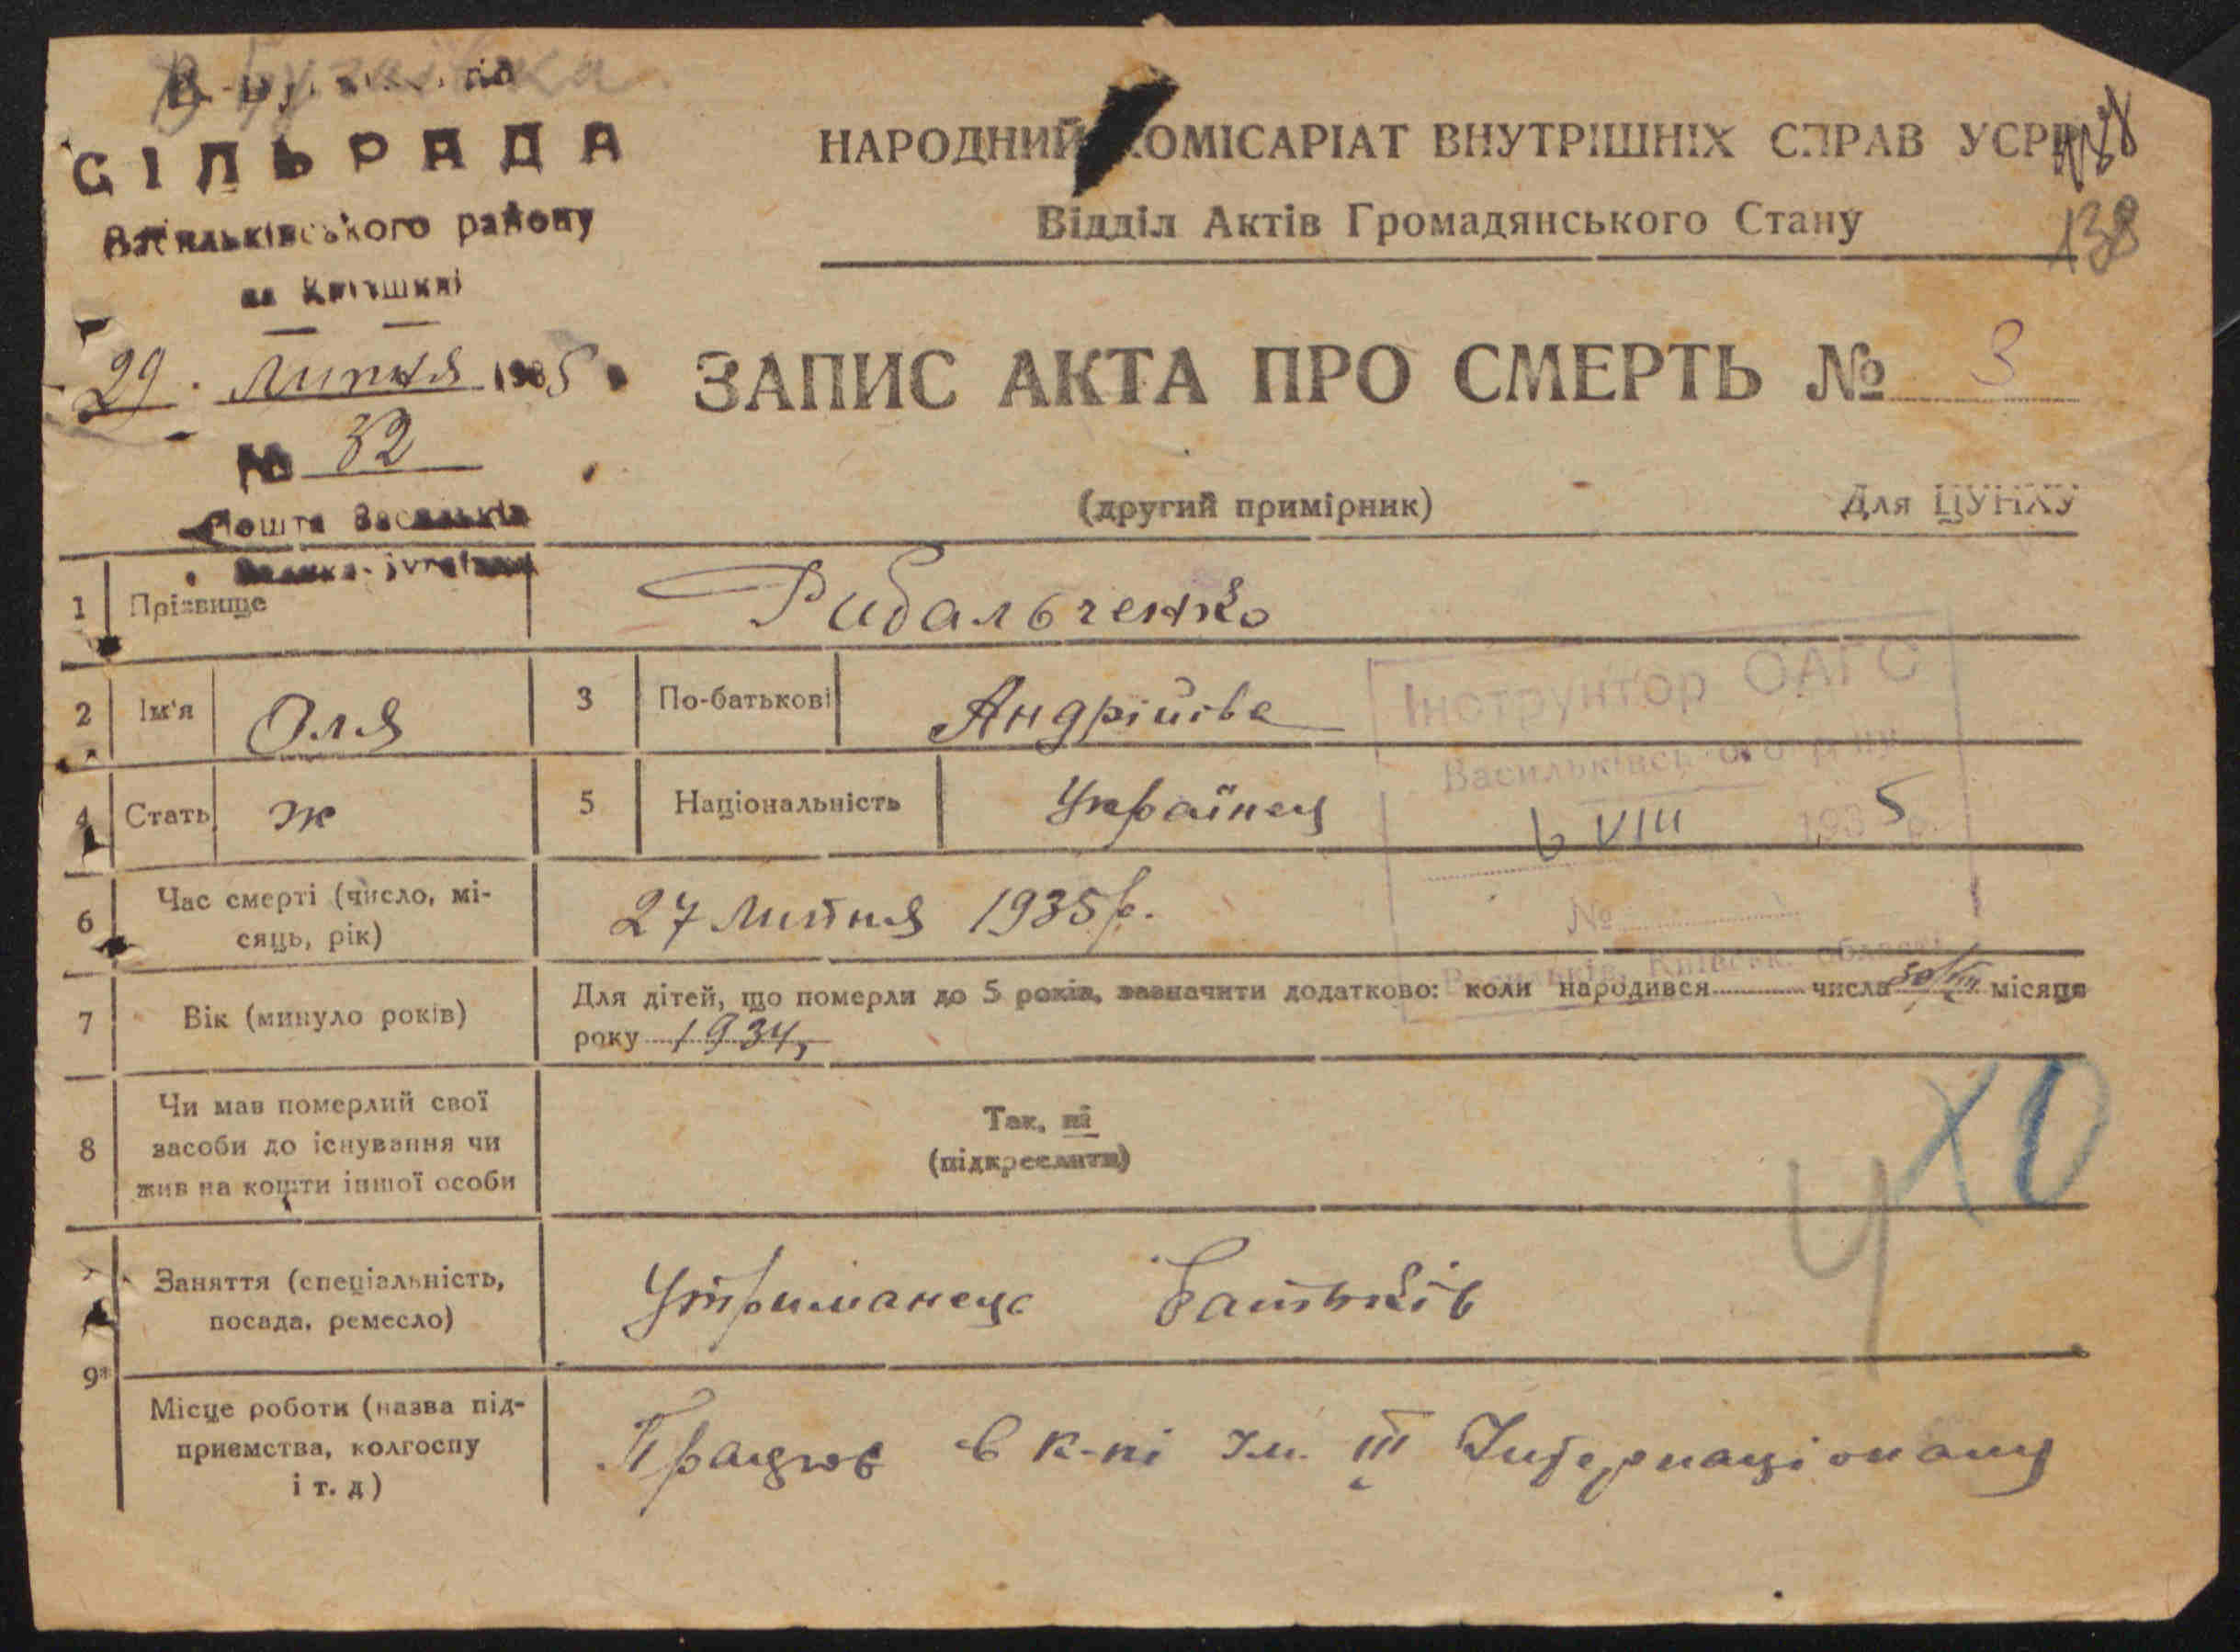 СІЛЬРАДА
Васильківського району
на Київщині
29. Липня 1935
№ 32
Пошта Васильків
НАРОДНИЙ КОМІСАРІАТ ВНУТРІШНІХ СПРАВ УСРР
138
Відділ Актів Громадянського Стану
ЗАПИС АКТА ПРО СМЕРТЬ № 3
(другий примірник)
Для ЦУНХУ
1 Прізвище Рибальченко
2 Ім'я Оля 3 По-батькові Андріїва
Інструктор ОАГС
Васильківського р-ну
6 VIII 1935 р.
№
Васильків, Київськ. області
4 Стать ж 5 Національність Українец
6 Час смерті (число, мі-
сяць, рік) 27 Липня 1935 р.
7 Вік (минуло років) Для дітей, що померли до 5 років, зазначити додатково: коли народився числа 30/VII місяця
року 1934,
8 Чи мав померлий свої
засоби до існування чи
жив на кошти іншої особи
Так, ні
(підкреслити)
ХО
Ч
9* Заняття (спеціальність,
посада, ремесло) Утриманець Батьків
Місце роботи (назва під-
приємства, колгоспу
і т. д) Працює в к-пі Ім. III Інтернаціоналу